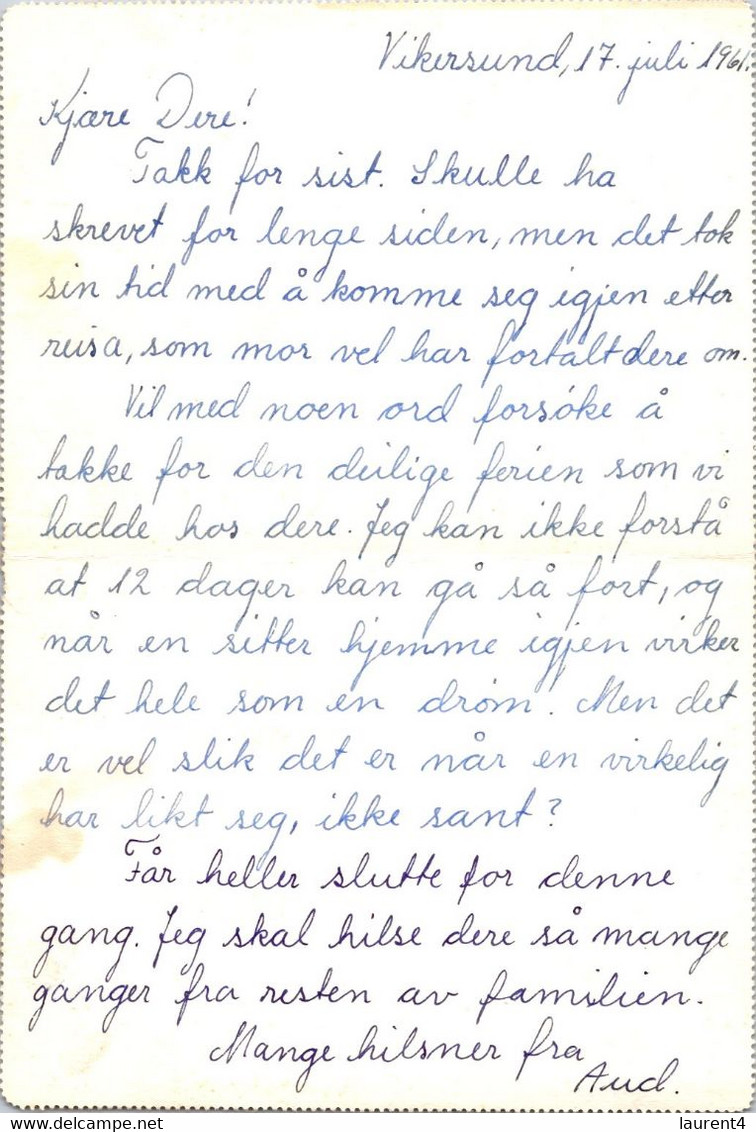 Vikersund, 17. juli 1961.
Kjære Dere!
Takk for sist. Skulle ha
skrevet for lenge siden, men det tok
sin tid med å komme seg igjen etter
reisa, som mor vel har fortalt dere om.
Vil med noen ord forsøke å
takke for den deilige ferien som vi
hadde hos dere. Jeg kan ikke forstå
at 12 dager kan gå så fort, og
når en sitter hjemme igjen virker
det hele som en drøm. Men det
er vel slik det er når en virkelig
har likt seg, ikke sant?
Får heller slutte for denne
gang. Jeg skal hilse dere så mange
ganger fra resten av familien.
Mange hilsner fra
Aud.
laurent4